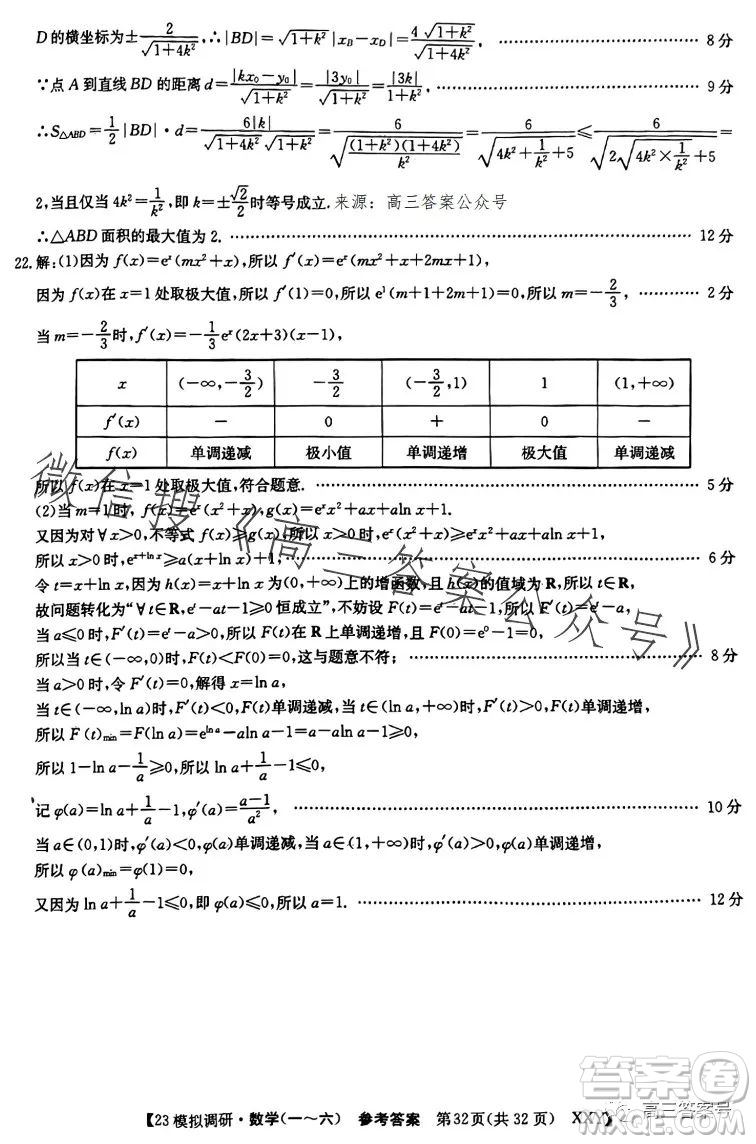 D的横坐标为±$\frac{2}{\sqrt{1+4k^2}}$,∴|BD|=$\sqrt{1+k^2}$|x_B−x_D|=$\frac{4\sqrt{1+k^2}}{\sqrt{1+4k^2}}$, …… 8分
∵点A到直线BD的距离d=$\frac{|kx_0-y_0|}{\sqrt{1+k^2}}$=$\frac{|3y_0|}{\sqrt{1+k^2}}$=$\frac{|3k|}{\sqrt{1+k^2}}$ …… 9分
∴S_{△ABD}=$\frac{1}{2}$|BD|·d=$\frac{6|k|}{\sqrt{1+4k^2}\sqrt{1+k^2}}$=$\frac{6}{\sqrt{\frac{(1+k^2)(1+4k^2)}{k^2}}}$=$\frac{6}{\sqrt{4k^2+\frac{1}{k^2}+5}}$≤$\frac{6}{\sqrt{2\sqrt{4k^2\times\frac{1}{k^2}}+5}}$=
2,当且仅当4k²=$\frac{1}{k^2}$,即k=±$\frac{\sqrt{2}}{2}$时等号成立. 来源:高三答案公众号
∴△ABD面积的最大值为2. …… 12分
22.解:(1)因为f(x)=e^x(mx²+x),所以f′(x)=e^x(mx²+x+2mx+1),
因为f(x)在x=1处取极大值,所以f′(1)=0,所以e¹(m+1+2m+1)=0,所以m=−$\frac{2}{3}$, …… 2分
当m=−$\frac{2}{3}$时,f′(x)=−$\frac{1}{3}$e^x(2x+3)(x−1),
x (−∞,−$\frac{3}{2}$) −$\frac{3}{2}$ (−$\frac{3}{2}$,1) 1 (1,+∞)
f′(x) − 0 + 0 −
f(x) 单调递减 极小值 单调递增 极大值 单调递减
所以f(x)在x=1处取极大值,符合题意. …… 5分
(2)当m=1时,f(x)=e^x(x²+x),g(x)=e^x x²+ax+aln x+1,
又因为对∀x>0,不等式f(x)≥g(x),所以x>0时,e^x(x²+x)≥e^x x²+ax+aln x+1,
所以x>0时,e^{x+ln x}≥a(x+ln x)+1, …… 6分
令t=x+ln x,因为h(x)=x+ln x为(0,+∞)上的增函数,且h(x)的值域为R,所以t∈R,
故问题转化为“∀t∈R,e^t−at−1≥0恒成立”,不妨设F(t)=e^t−at−1,所以F′(t)=e^t−a,
当a≤0时,F′(t)>0,所以F(t)在R上单调递增,且F(0)=e⁰−1=0,
所以当t∈(−∞,0)时,F(t)<F(0)=0,这与题意不符; …… 8分
当a>0时,令F′(t)=0,解得x=ln a,
当t∈(−∞,ln a)时,F′(t)<0,F(t)单调递减,当t∈(ln a,+∞)时,F′(t)>0,F(t)单调递增,
所以F(t)_{min}=F(ln a)=e^{ln a}−aln a−1=a−aln a−1≥0,
所以1−ln a−$\frac{1}{a}$≥0,即ln a+$\frac{1}{a}$−1≤0,
记φ(a)=ln a+$\frac{1}{a}$−1,φ′(a)=$\frac{a-1}{a^2}$, …… 10分
当a∈(0,1)时,φ′(a)<0,φ(a)单调递减,当a∈(1,+∞)时,φ′(a)>0,φ(a)单调递增,
所以φ(a)_{min}=φ(1)=0,
又因为ln a+$\frac{1}{a}$−1≤0,即φ(a)≤0,所以a=1. …… 12分
微信搜《高三答案公众号》
【23模拟调研·数学(一～六) 参考答案 第32页(共32页) XXY】
答案圈
高三答案号